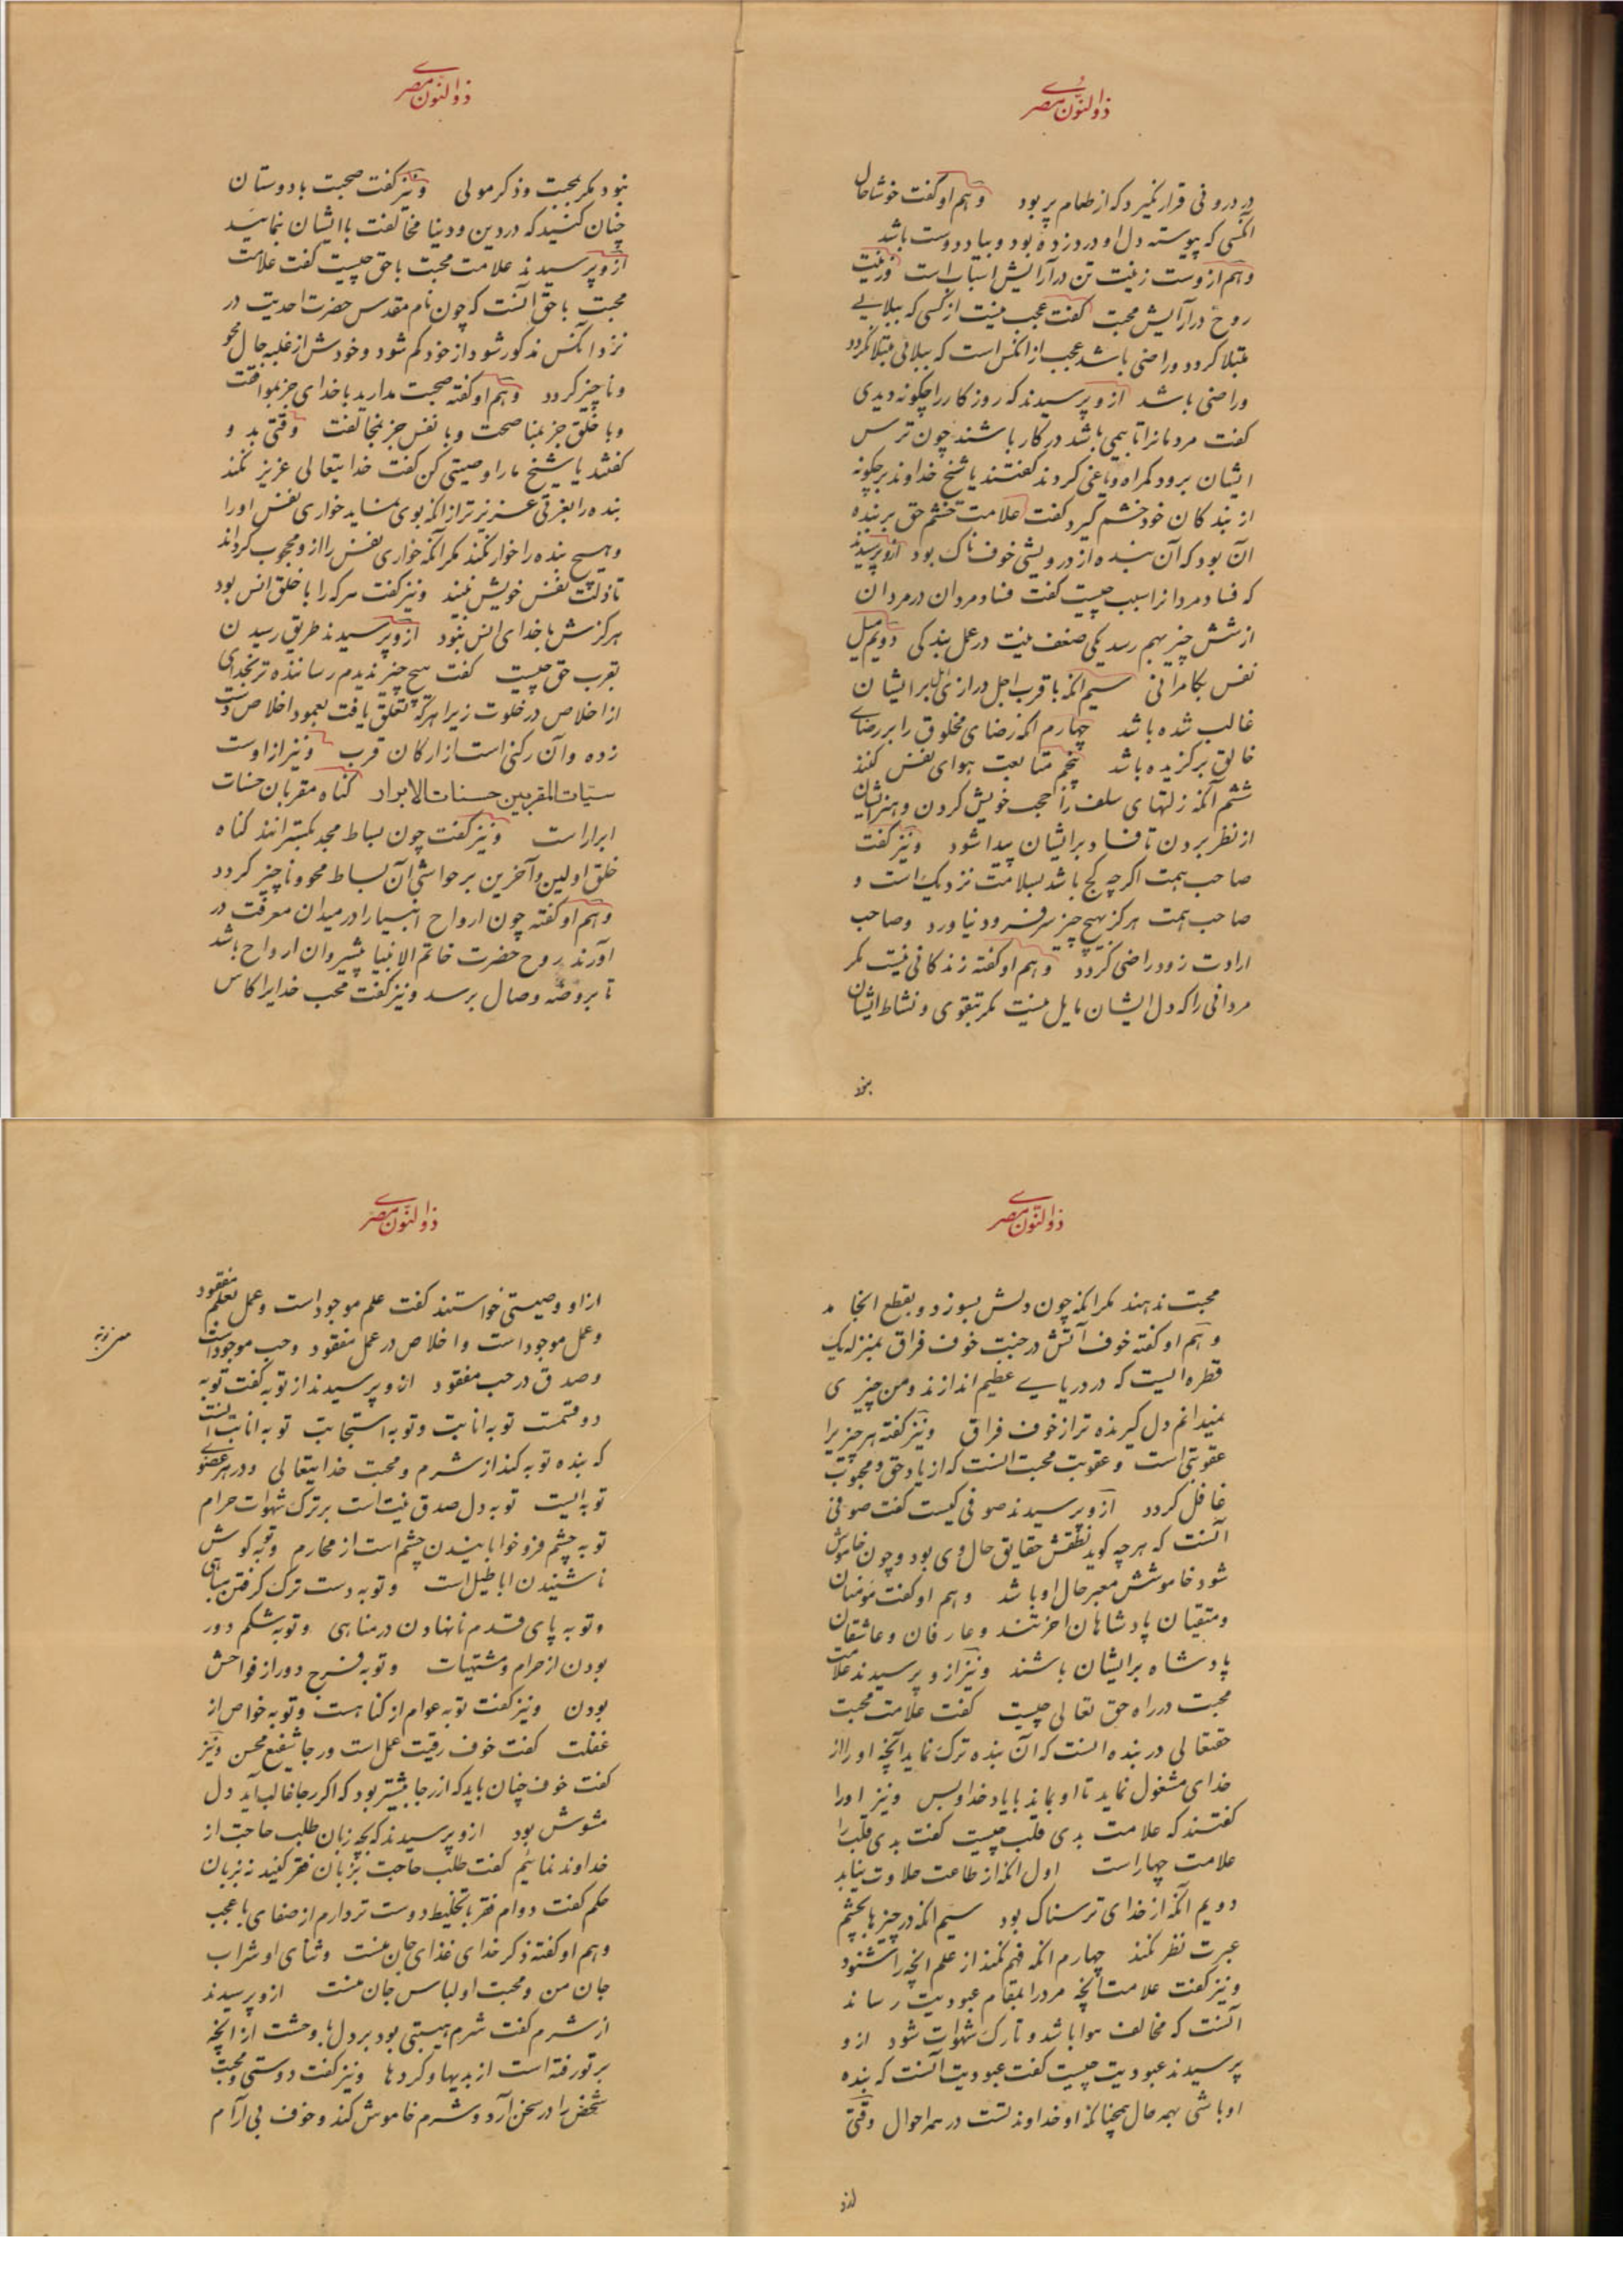 ذوالنون مصری
در درونی قرار نگیرد که از طعام پر بود وهم او گفت خوشا حال
آنکسی که پیوسته دل او در دزده بود و بیاد دوست باشد
وهم ازوست زینت تن در آرایش اسباب است وزینت
روح در آرایش محبت گفت عجب نیست از کسی که ببلایی
مبتلا گردد و راضی باشد عجب از آنکس است که ببلائی مبتلا نگردد
و راضی باشد ازو پرسیدند که روزکار را چکونه دیدی
گفت مردمانرا تا بیمی باشد در کار باشند چون ترس
ایشان برود گمراه و یاغی گردند گفتند یا شیخ خداوند بر چکونه
از بندکان خود خشم گیرد گفت علامت خشم حق بر بنده
آن بود که آن بنده از درویشی خوفناک بود ازو پرسیدند
که فساد مردانرا سبب چیست گفت فساد مردان در مردان
از شش چیز بهم رسد یکی ضعف نیت در عمل بندکی دویم میل
نفس بکامرانی سیم آنکه با قرب اجل درازی امل بر ایشان
غالب شده باشد چهارم آنکه رضای مخلوق را بر رضای
خالق برکزیده باشد پنجم متابعت هوای نفس کنند
ششم آنکه زلتهای سلف را حجب خویش کردن و هنر ایشان
از نظر بردن تا فساد بر ایشان پیدا شود ونیز گفت
صاحب همت اگرچه کج باشد بسلامت نزدیک است و
صاحب همت هرگز بهیچ چیز سر فرود نیاورد وصاحب
ارادت زود راضی گردد وهم او گفته زندکانی نیست مگر
مردانی را که دل ایشان مایل نیست مگر بتقوی و نشاط ایشان
نبود
ذوالنون مصری
نبود مگر بمحبت و ذکر مولی ونیز گفت صحبت با دوستان
چنان کنید که در دین و دنیا مخالفت با ایشان ننمایید
ازو پرسیدند علامت محبت با حق چیست گفت علامت
محبت با حق آنست که چون نام مقدس حضرت احدیت در
نزد آنکس مذکور شود از خود کم شود و خودش از غلبه جمال محو
و ناچیز کردد وهم او گفته صحبت مدارید با خدای جز بموافقت
و با خلق جز بمناصحت و با نفس جز بمخالفت وقتی بدو
گفتند یا شیخ ما را وصیتی کن گفت خدایتعالی عزیز نکند
بنده را بعزتی عزیزتر از آنکه بوی نماید خواری نفس او را
و هیچ بنده را خوار نکند مگر آنکه خواری نفس را ازو محجوب کرداند
تا ذلت نفس خویش نبیند ونیز گفت هر که را با خلق انس بود
هرگزش با خدای انس نبود ازو پرسیدند طریق رسیدن
بقرب حق چیست گفت هیچ چیز ندیدم رساننده تر بخدای
از اخلاص در خلوت زیرا هر که تعلق یافت بعمود اخلاص دست
زده و آن رکنی است از ارکان قرب ونیز از اوست
سیّات المقربین حسنات الابرار گناه مقربان حسنات
ابرار است ونیز گفت چون بساط مجد بکسترانند گناه
خلق اولین و آخرین بر حواشی آن بساط محو و ناچیز کردد
وهم او گفته چون ارواح انبیا را در میدان معرفت در
آورند روح حضرت خاتم الانبیا پیشروان ارواح باشد
تا بروضه وصال برسد ونیز گفت محب خدایرا کاس
ذوالنون مصری
محبت ندهند مگر آنکه چون دلش بسوزد و بقطع انجامد
وهم او گفته خوف آتش در جنب خوف فراق بمنزله یک
قطره ایست که در دریایی عظیم اندازند ومن چیزی
نمیدانم دل گیرنده تر از خوف فراق ونیز گفته هر چیزیرا
عقوبتی است و عقوبت محبت آنست که از یاد حق و محبوب
غافل کردد ازو پرسیدند صوفی کیست گفت صوفی
آنست که هر چه گوید نطقش حقایق حال وی بود و چون خاموش
شود خاموشش معبر حال او باشد وهم او گفت مؤمنان
و متقیان پادشاهان آخرتند و عارفان و عاشقان
پادشاه بر ایشان باشند ونیز ازو پرسیدند علامت
محبت در راه حق تعالی چیست گفت علامت محبت
حقتعالی در بنده آنست که آن بنده ترک نماید آنچه او را از
خدای مشغول نماید تا او بماند با یاد خدا و بس ونیز او را
گفتند که علامت بدی قلب چیست گفت بدی قلب را
علامت چهار است اول آنکه از طاعت حلاوت نیابد
دویم آنکه از خدای ترسناک بود سیم آنکه در چیزها بچشم
عبرت نظر نکند چهارم آنکه فهم نکند از علم آنچه را شنود
ونیز گفت علامت آنچه مرد را بمقام عبودیت رساند
آنست که مخالف هوا باشد و تارک شهوات شود ازو
پرسیدند عبودیت چیست گفت عبودیت آنست که بنده
او باشی بهمه حال همچنانکه او خداوند تست در همه احوال وقتی
ازو
ذوالنون مصری
ازاو وصیتی خواستند گفت علم موجود است و عمل بعلم مفقود
و عمل موجود است و اخلاص در عمل مفقود وحب موجود است
و صدق در حب مفقود ازو پرسیدند از توبه گفت توبه
دو قسمت توبه انابت و توبه استجابت توبه انابت آنست
که بنده توبه کند از شرم و محبت خدایتعالی و در هر عضوی
توبه ایست توبه دل صدق نیت است بر ترک شهوات حرام
توبه چشم فرو خوابانیدن چشم است از محارم وتوبه گوش
ناشنیدن اباطیل است وتوبه دست ترک گرفتن مناهی
وتوبه پای قدم نانهادن در مناهی وتوبه شکم دور
بودن از حرام و مشتهیات وتوبه فرج دور از فواحش
بودن ونیز گفت توبه عوام از گناهست وتوبه خواص از
غفلت گفت خوف رقیب عمل است ورجا شفیع محسن ونیز
گفت خوف چنان باید که از رجا بیشتر بود که اگر رجا غالب آید دل
مشوش بود ازو پرسیدند که بچه زبان طلب حاجت از
خداوند نمائیم گفت طلب حاجت بزبان فقر کنید نه بزبان
حکم گفت دوام فقر با تخلیط دوست تر دارم از صفای با عجب
وهم او گفته ذکر خدای غذای جان منست وثنای او شراب
جان من ومحبت او لباس جان منست ازو پرسیدند
از شرم گفت شرم هیبتی بود بر دل با وحشت از آنچه
بر تو رفته است از بدیها و کردها ونیز گفت دوستی ومحبت
شخص را در سخن آرد وشرم خاموش کند وخوف بی آرام